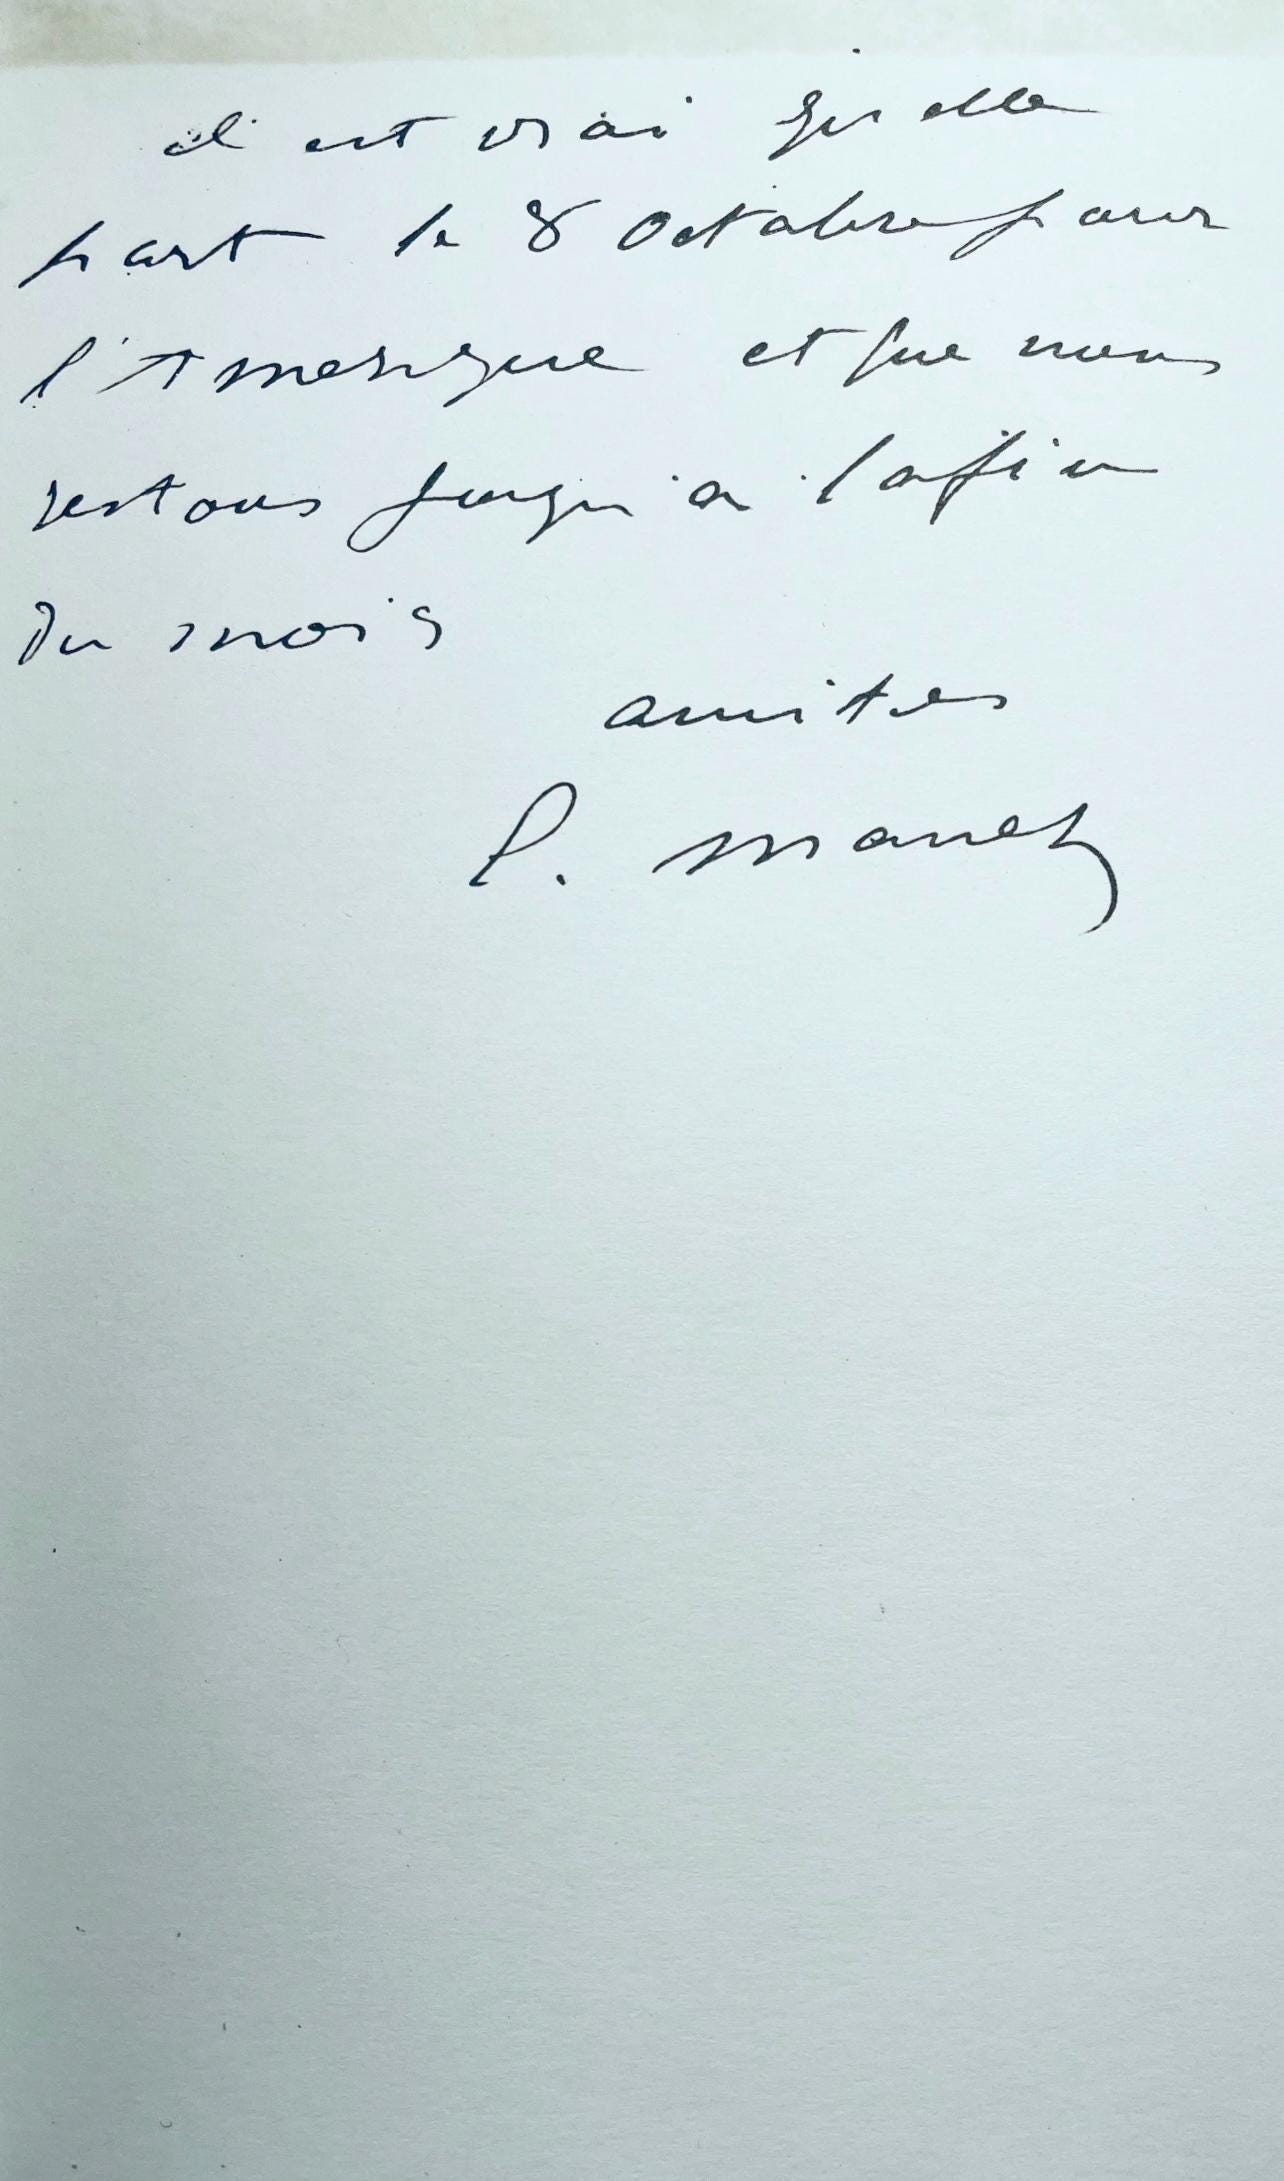 il est vrai qu'elle
part le 8 Octobre pour
l'Amerique et que nous
restons jusqu'a la fin
du mois
amities
P. Manet